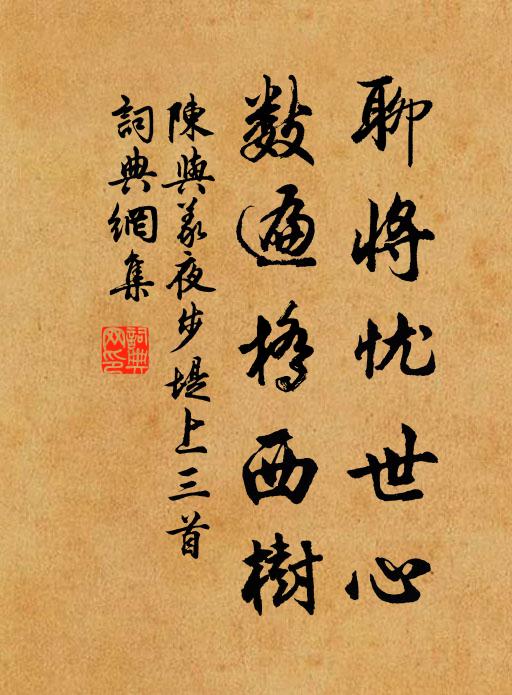 聊将忧世心
数遍桥西樹
陳與義夜步堤上三首
詞典網集
詞典
网印